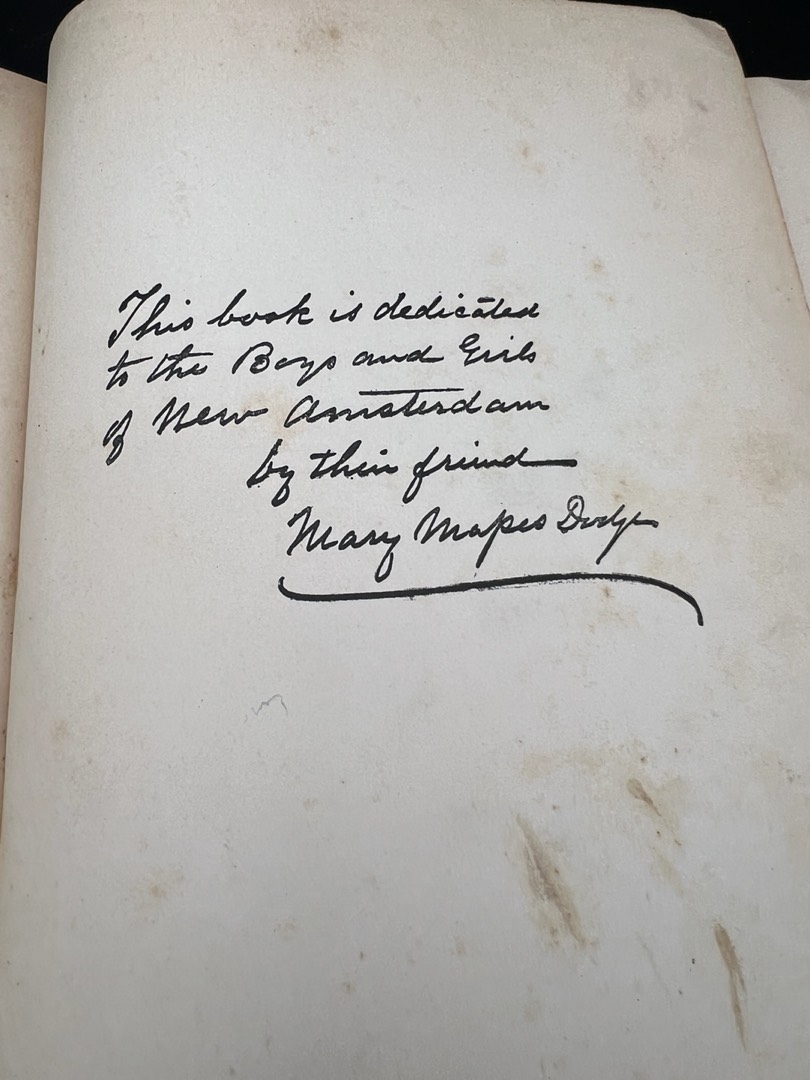 This book is dedicated
to the Boys and Girls
of New Amsterdam
by their friend
Mary Mapes Dodge